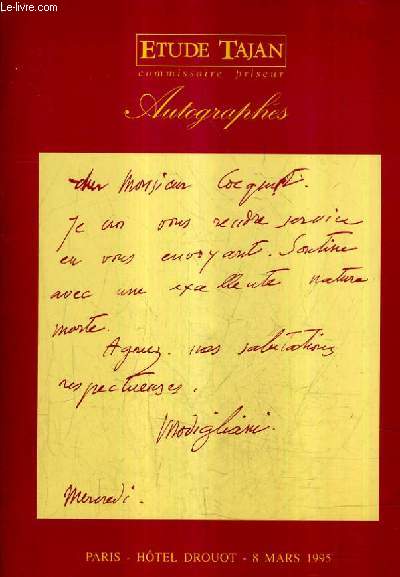 ETUDE TAJAN
commissaire priseur
Autographes
cher Monsieur Cocquiot.
Je crois vous rendre service
en vous envoyant. Soutine
avec une exellente nature
morte.
Agreez. mes salutations
respectueuses.
Modigliani.
Mercredi.
PARIS - HÔTEL DROUOT - 8 MARS 1995
© www.le-livre.com